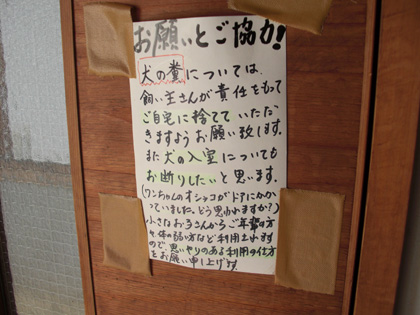 お願いとご協力!
犬の糞については、
飼い主さんが責任をもって
ご自宅に捨てていただ
きますようお願い致します。
また犬の入室についても
お断りしたいと思います。
(ワンちゃんのオシッコがドアにかか
っていました。どう思われますか?)
小さなお子さんからご年配の方
々体の弱い方など利用されます
ので、思いやりのある利用の仕方
をお願い申し上げます